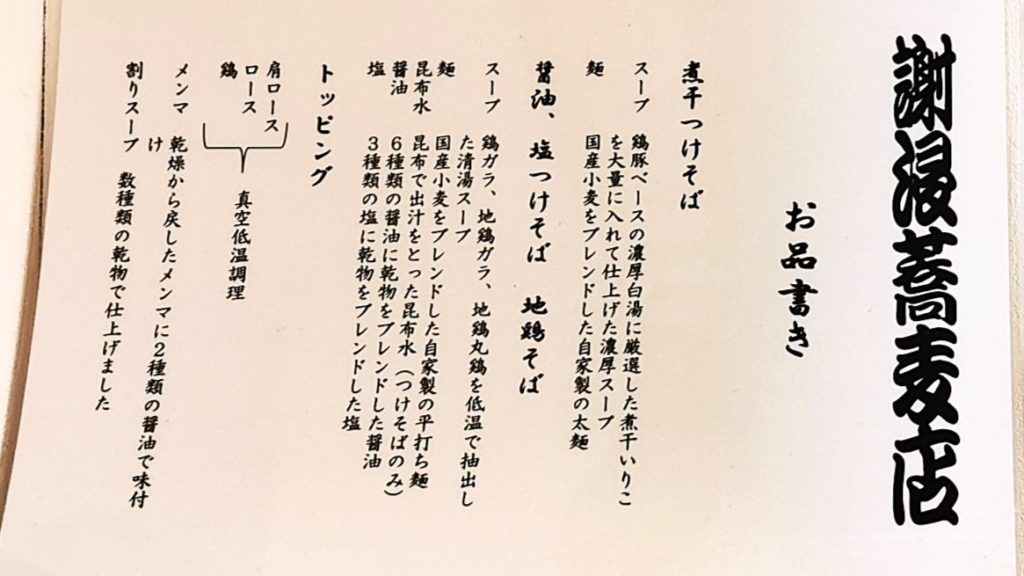 謝浸蕎麦店
お品書き
煮干つけそば
スープ　鶏豚ベースの濃厚白湯に厳選した煮干いりこ
を大量に入れて仕上げた濃厚スープ
麺　国産小麦をブレンドした自家製の太麺
醤油、塩つけそば　地鶏そば
スープ　鶏ガラ、地鶏ガラ、地鶏丸鶏を低温で抽出し
た清湯スープ
麺　国産小麦をブレンドした自家製の平打ち麺
昆布水　昆布で出汁をとった昆布水（つけそばのみ）
醤油　６種類の醤油に乾物をブレンドした醤油
塩　３種類の塩に乾物をブレンドした塩
トッピング
肩ロース
ロース
鶏
真空低温調理
メンマ　乾燥から戻したメンマに２種類の醤油で味付
け
割りスープ　数種類の乾物で仕上げました